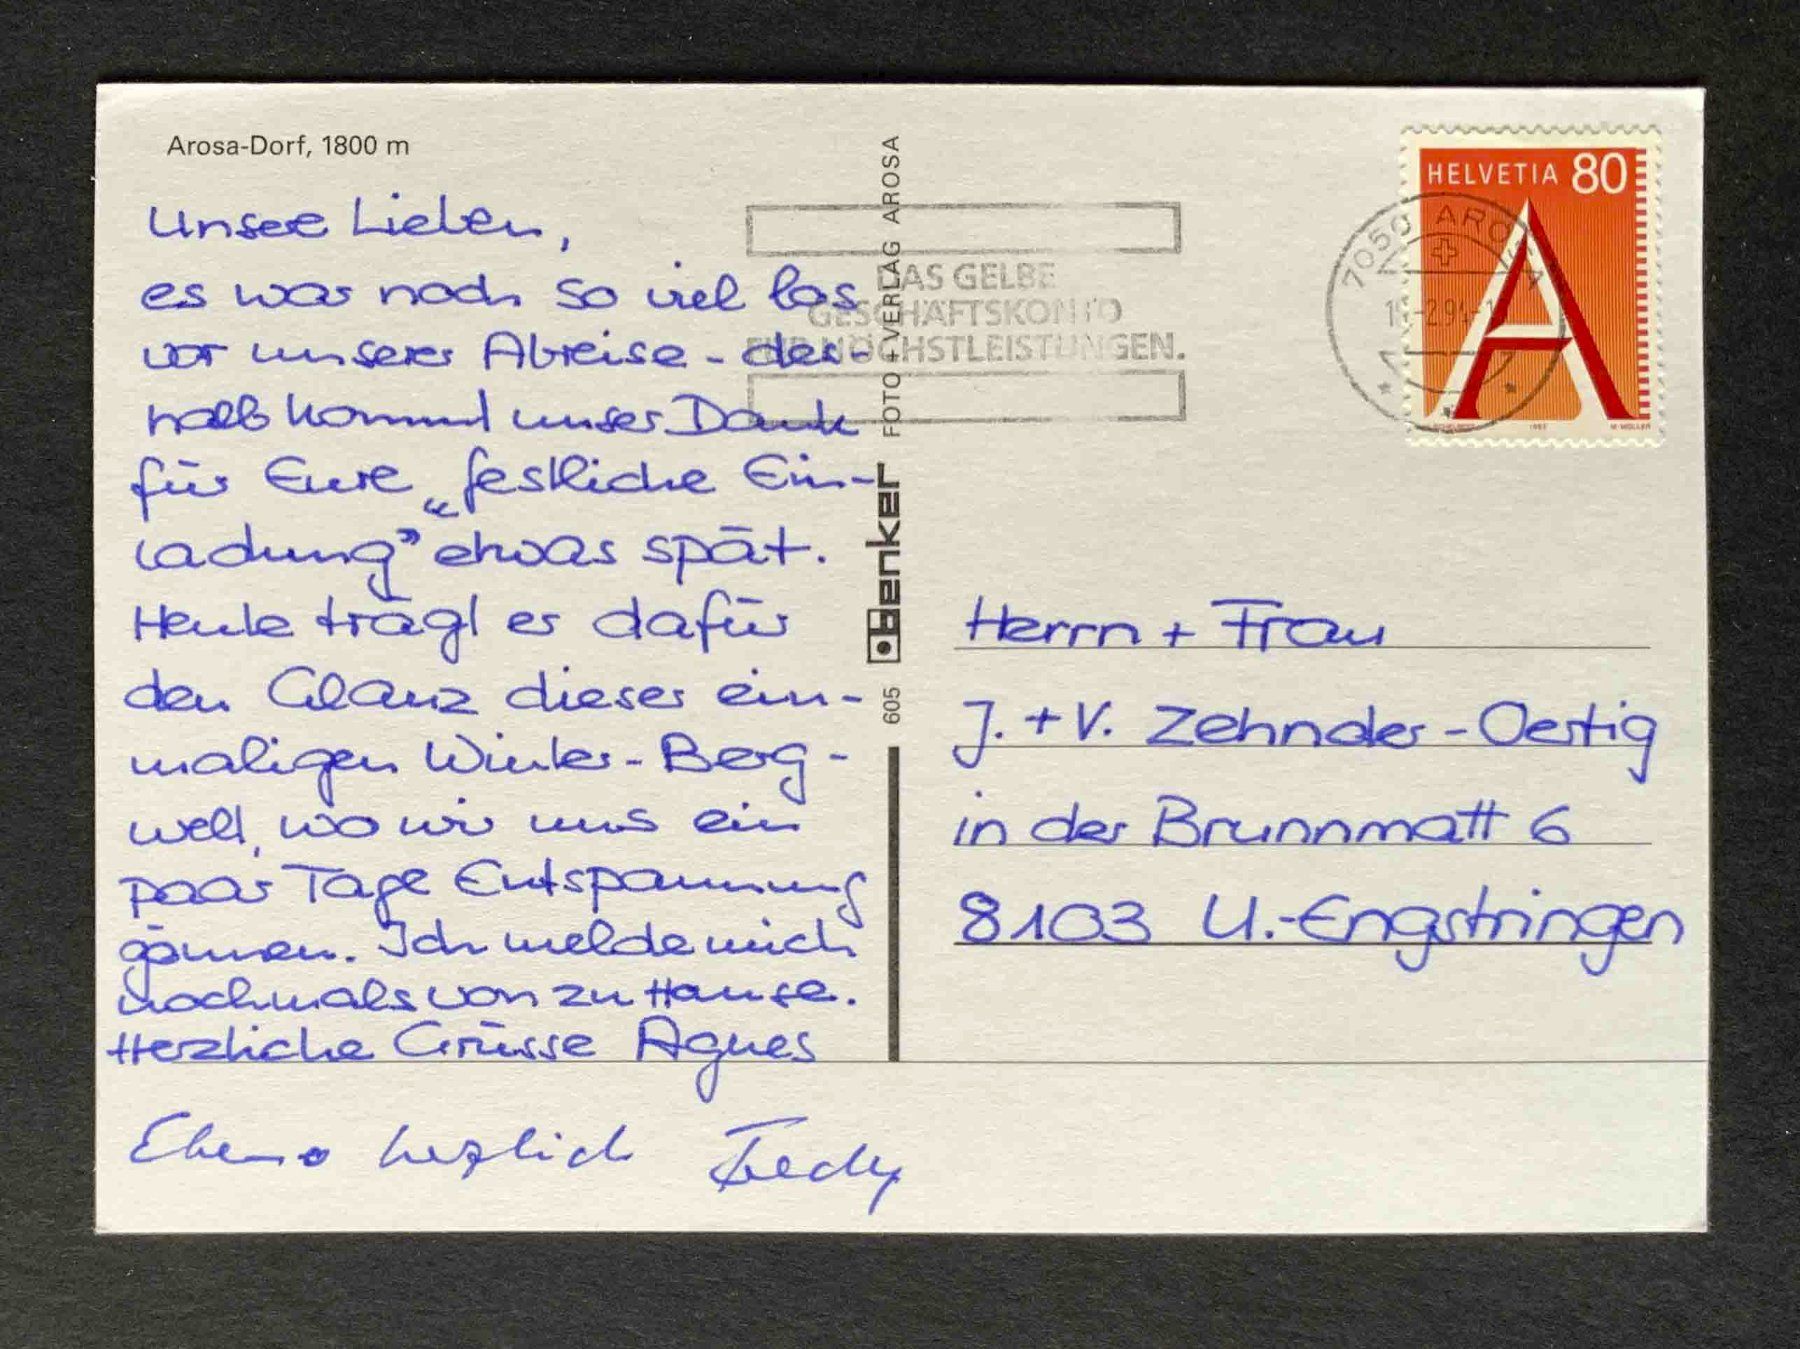 Arosa-Dorf, 1800 m
Unsere Lieben,
es war noch so viel los
vor unserer Abreise - des-
halb kommt unser Dank
für Eure „festliche Ein-
ladung" etwas spät.
Heute trägt es dafür
den Glanz dieser ein-
maligen Winter-Berg-
welt, wo wir uns ein
paar Tage Entspannung
gönnen. Ich melde mich
nochmals von zu Hause.
Herzliche Grüsse Agnes
Ebenso herzlich Fredy
605 benker FOTO + VERLAG AROSA
DAS GELBE
GESCHÄFTSKONTO
FÜR HÖCHSTLEISTUNGEN.
7050 AROSA
HELVETIA 80
A
Herrn + Frau
J. + V. Zehnder-Oertig
in der Brunnmatt 6
8103 U.-Engstringen